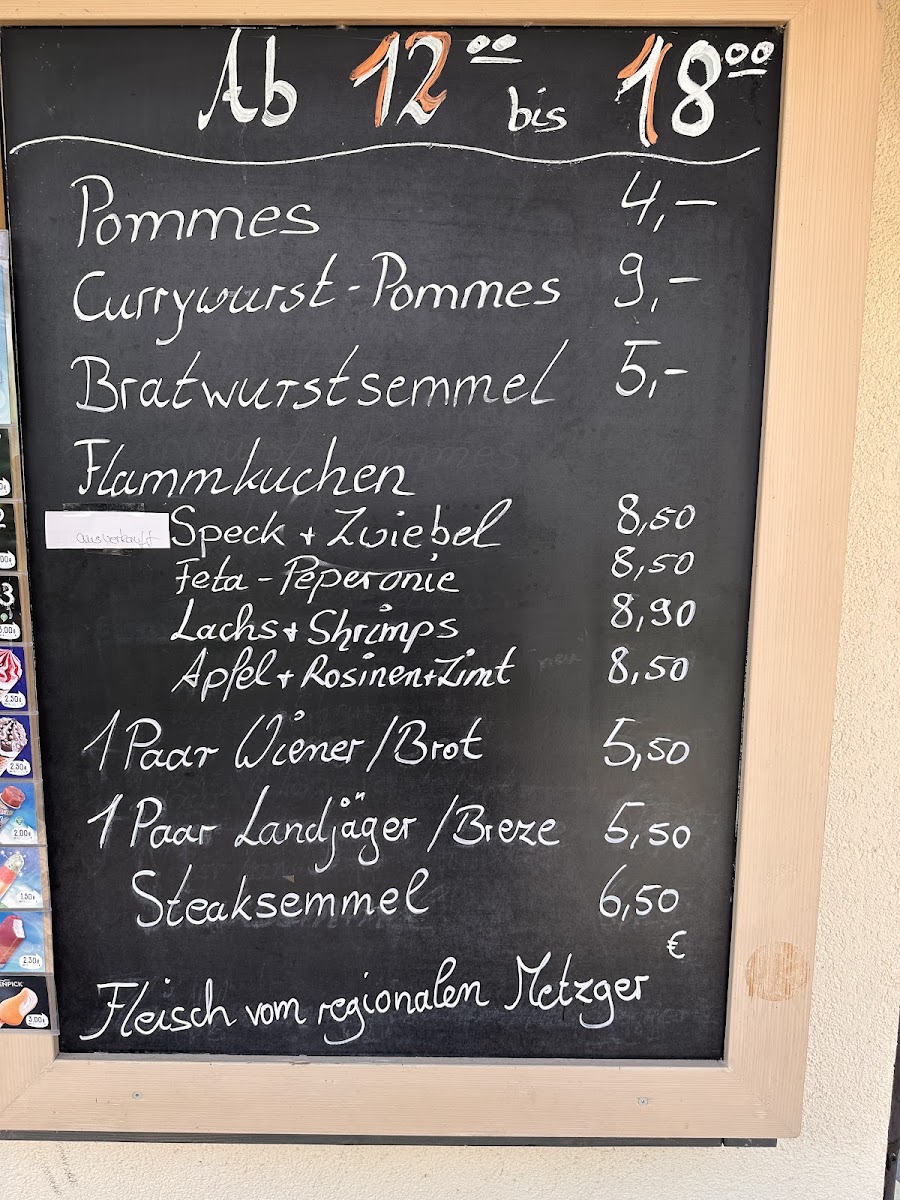 Ab 12⁰⁰ bis 18⁰⁰
Pommes 4,–
Currywurst-Pommes 9,–
Bratwurstsemmel 5,–
Flammkuchen
ausverkauft Speck + Zwiebel 8,50
Feta-Peperonie 8,50
Lachs + Shrimps 8,90
Apfel + Rosinen + Zimt 8,50
1 Paar Wiener / Brot 5,50
1 Paar Landjäger / Breze 5,50
Steaksemmel 6,50
€
Fleisch vom regionalen Metzger
3,00€
2,30€
2,30€
2,00€
1,50€
2,30€
ENPICK
3,00€